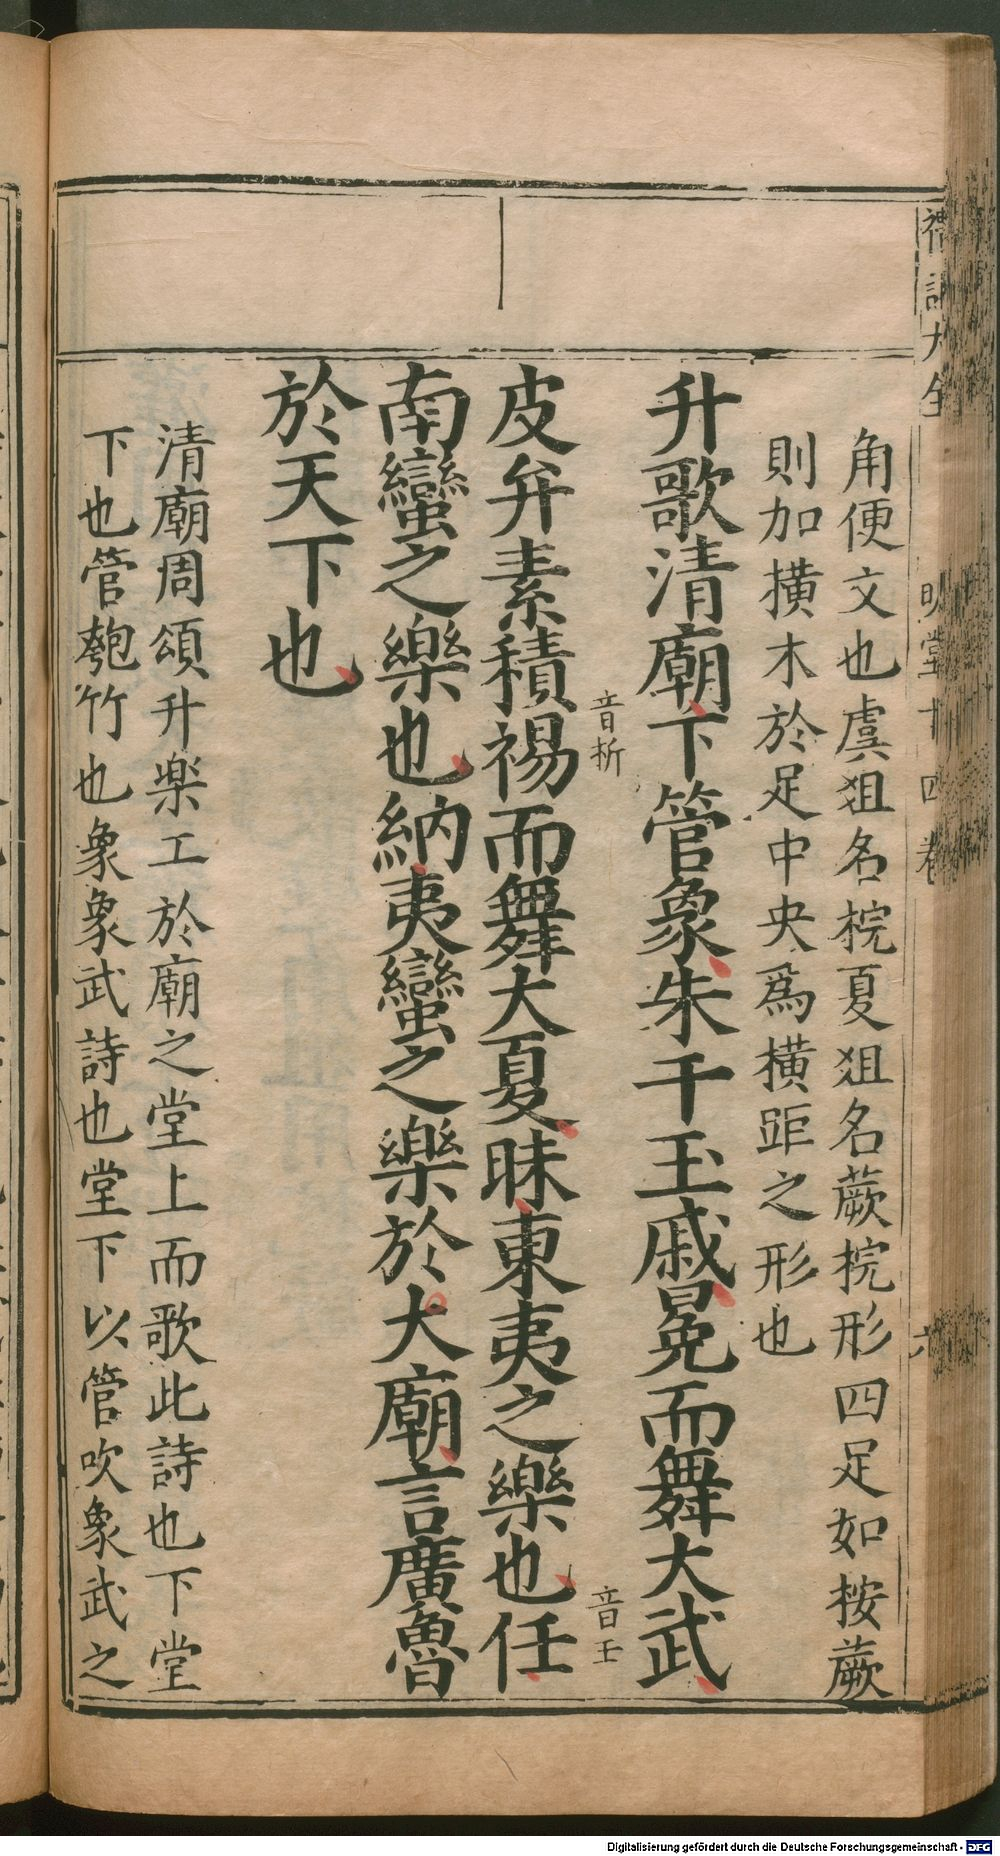 禮記大全
明堂十四卷
六
角便文也虞俎名梡夏俎名蕨梡形四足如按蕨
則加橫木於足中央爲橫距之形也
升歌清廟下管象朱干玉戚冕而舞大武
音析
音壬
皮弁素積裼而舞大夏昧東夷之樂也任
南蠻之樂也納夷蠻之樂於大廟言廣魯
於天下也
清廟周頌升楽工於廟之堂上而歌此詩也下堂
下也管匏竹也象象武詩也堂下以管吹象武之
Digitalisierung gefördert durch die Deutsche Forschungsgemeinschaft - DFG